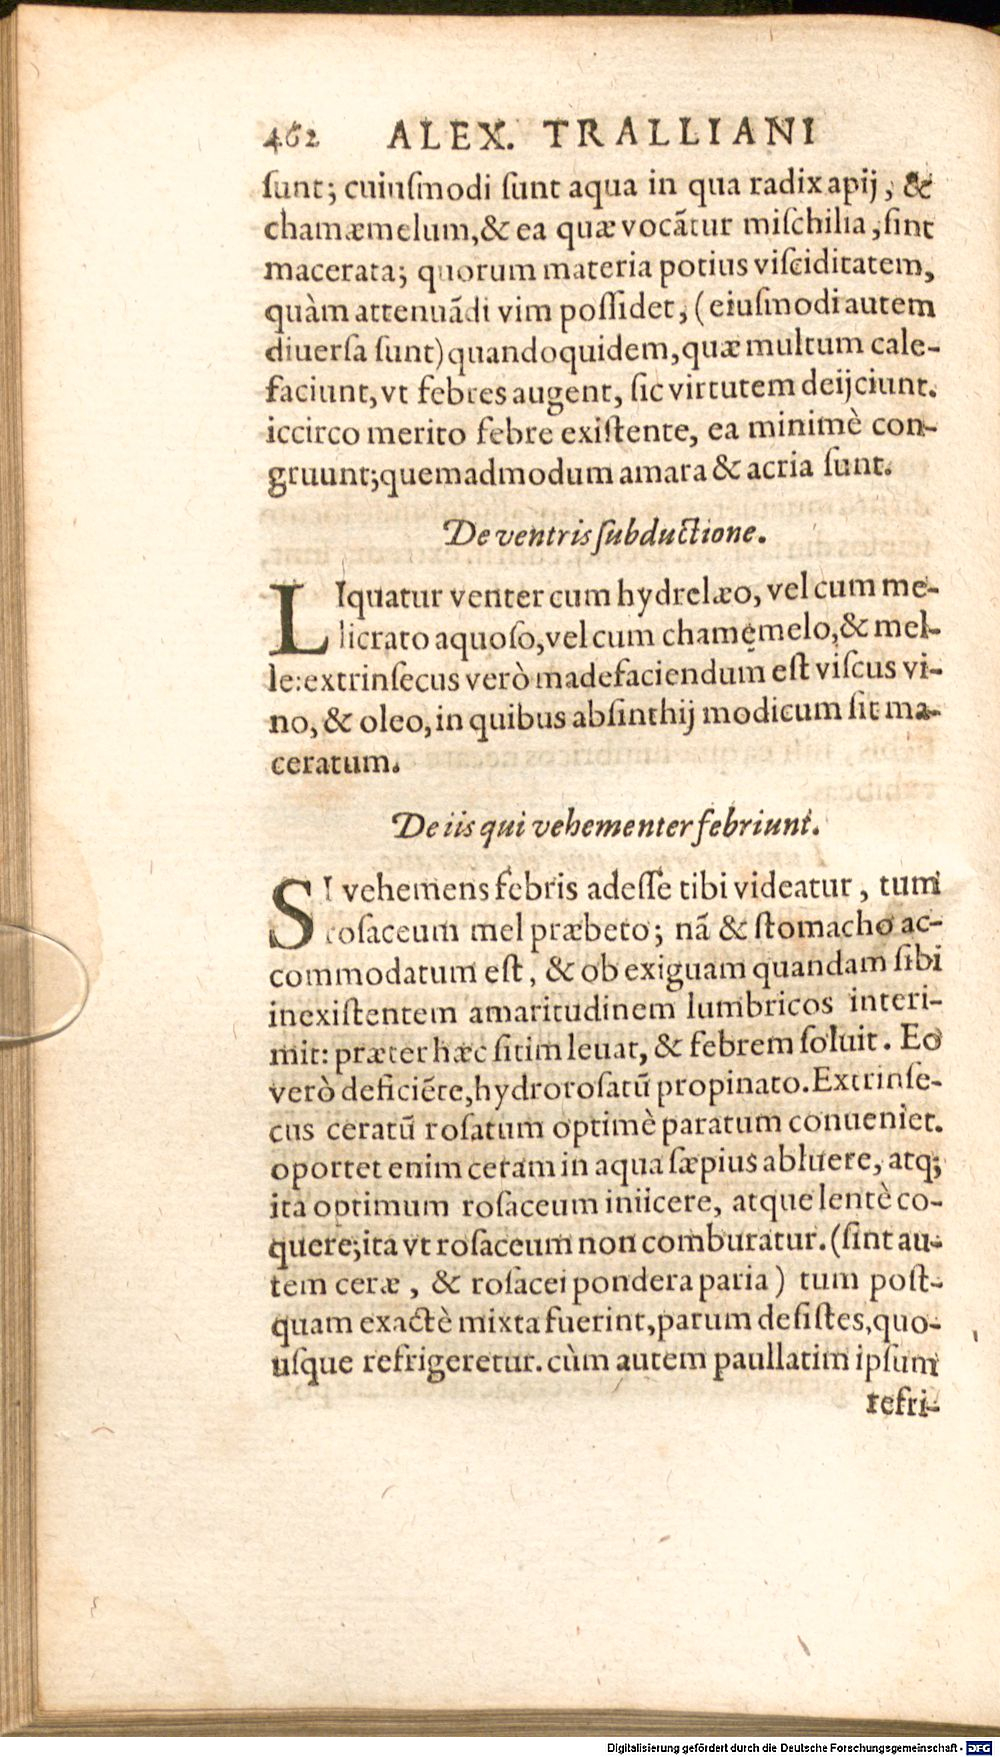 462 ALEX. TRALLIANI
ſunt; cuiuſmodi ſunt aqua in qua radix apij, &
chamæmelum, & ea quæ vocãtur miſchilia, ſint
macerata; quorum materia potius viſciditatem,
quàm attenuãdi vim poſſidet, (eiuſmodi autem
diuerſa ſunt) quandoquidem, quæ multum cale-
faciunt, vt febres augent, ſic virtutem deijciunt.
iccirco merito febre exiſtente, ea minimè con-
gruunt; quemadmodum amara & acria ſunt.
De ventris ſubductione.
LIquatur venter cum hydrelæo, vel cum me-
licrato aquoſo, vel cum chamęmelo, & mel-
le: extrinſecus verò madefaciendum eſt viſcus vi-
no, & oleo, in quibus abſinthij modicum ſit ma-
ceratum.
De iis qui vehementer febriunt.
SI vehemens febris adeſſe tibi videatur, tum
roſaceum mel præbeto; nã & ſtomacho ac-
commodatum eſt, & ob exiguam quandam ſibi
inexiſtentem amaritudinem lumbricos interi-
mit: præter hæc ſitim leuat, & febrem ſoluit. Eo
verò deficiẽte, hydroroſatũ propinato. Extrinſe-
cus ceratũ roſatum optimè paratum conueniet.
oportet enim ceram in aqua ſæpius abluere, atq;
ita optimum roſaceum iniicere, atque lentè co-
quere; ita vt roſaceum non comburatur. (ſint au-
tem ceræ, & roſacei pondera paria) tum poſt-
quam exactè mixta fuerint, parum deſiſtes, quo-
uſque refrigeretur. cùm autem paullatim ipſum
refri-
Digitalisierung gefördert durch die Deutsche Forschungsgemeinschaft - DFG